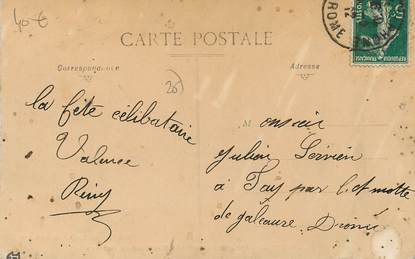 40 €
DROME
CARTE POSTALE
Correspondance
Adresse
20
la fête célibataire
Valence
Rémy
Monsieur
Julien
à Tay par l'et motte
de galaure Drome